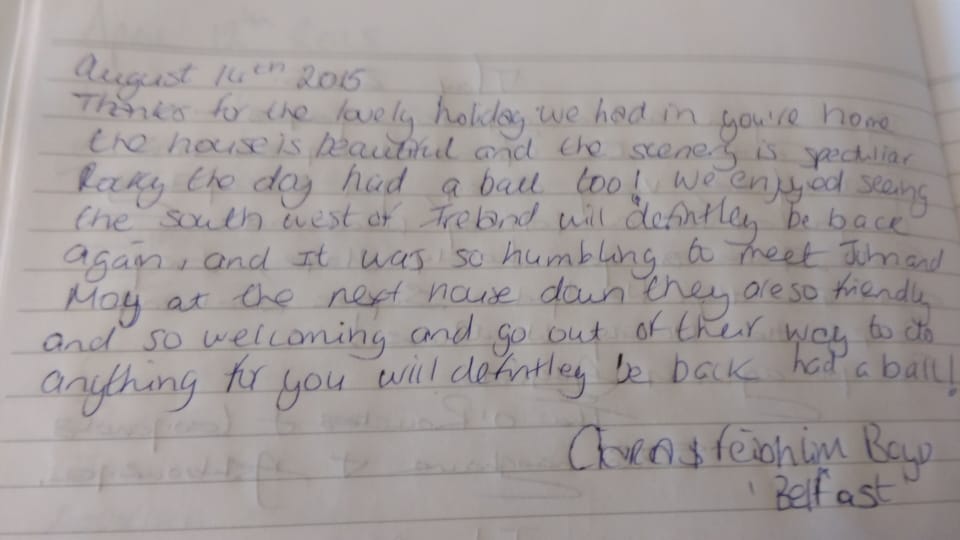 August 14th 2015
Thanks for the lovely holiday we had in you're home
the house is beautiful and the scenery is
Rocky the dog had a ball too! we enjyod seeing
the south west of Ireland will defintley be back
again, and it was so humbling to meet John and
May at the next house down they are so friendly
and so welcoming and go out of their way to do
anything for you will defintley be back had a ball!
& Feidhlim Boyd
Belfast